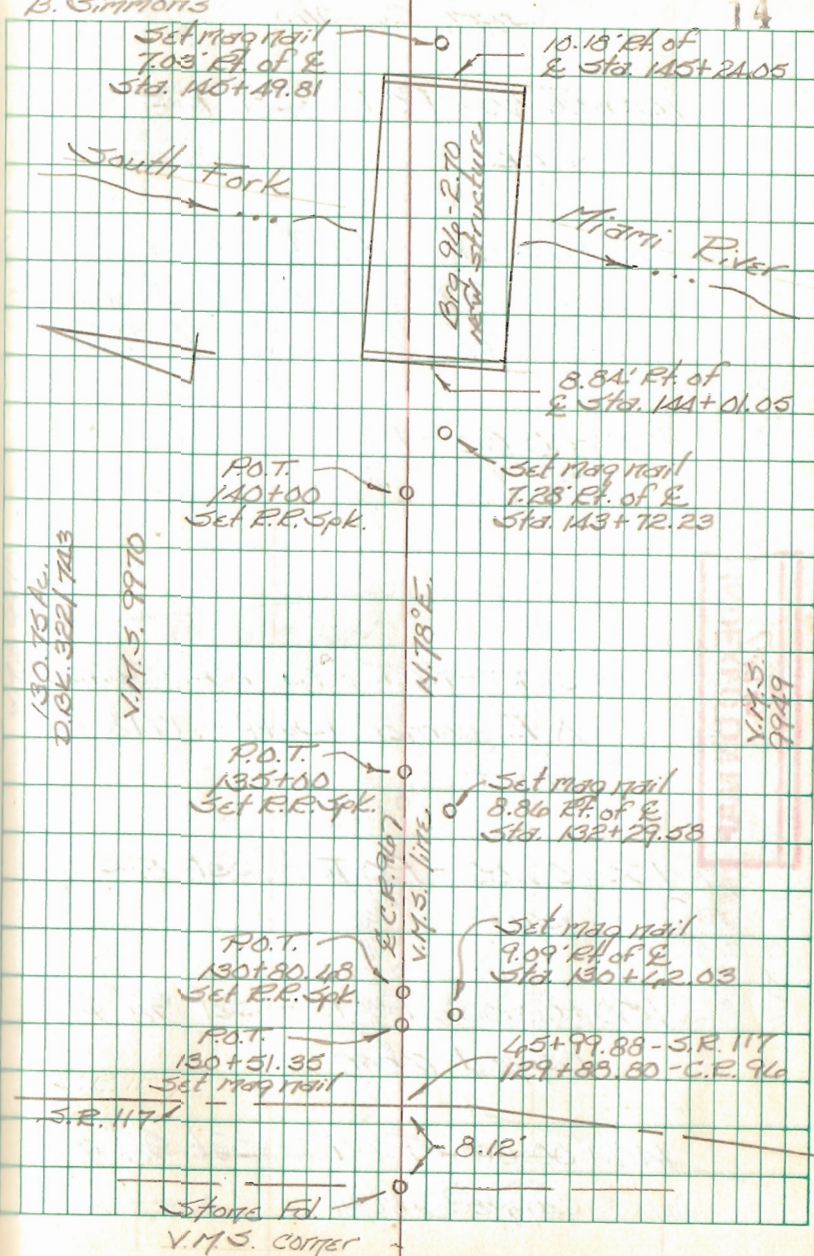 B. Simmons
14
Set mag nail
7.03' Rt. of ℄
Sta. 145+49.81
10.18' Rt. of
℄ Sta. 145+24.05
South Fork
Brg. 96-2.70
New Structure
Miami River
8.84' Rt. of
℄ Sta. 144+01.05
P.O.T.
140+00
Set R.R. Spk.
Set mag nail
7.28' Rt. of ℄
Sta. 143+72.23
130.75 Ac.
D.BK. 322/743
V.M.S. 9970
N.78°E.
V.M.S.
9949
P.O.T.
135+00
Set R.R. Spk.
Set mag nail
8.86 Rt. of ℄
Sta. 132+29.58
℄ C.R. 96
V.M.S. line
P.O.T.
130+80.48
Set R.R. Spk.
Set mag nail
9.09' Rt. of ℄
Sta. 130+42.03
P.O.T.
130+51.35
Set mag nail
45+99.88 - S.R. 117
129+88.80 - C.R. 96
S.R. 117
8.12'
Stone Fd.
V.M.S. corner